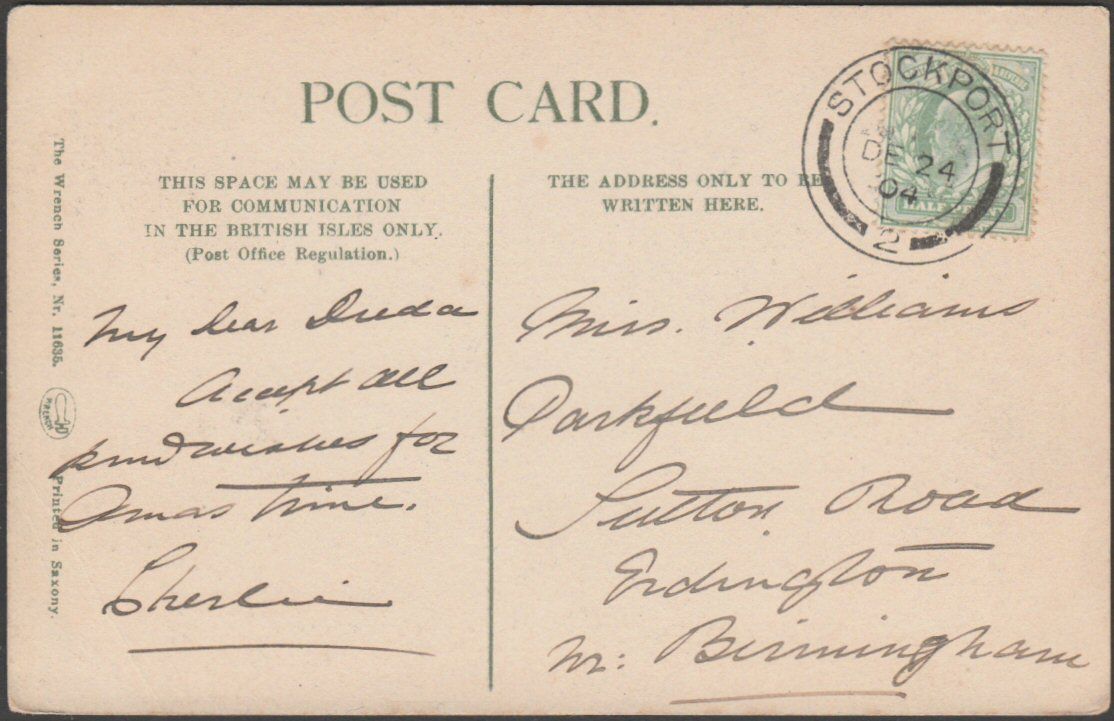 POST CARD.
THIS SPACE MAY BE USED
FOR COMMUNICATION
IN THE BRITISH ISLES ONLY.
(Post Office Regulation.)
THE ADDRESS ONLY TO BE
WRITTEN HERE.
STOCKPORT
DE 24
04
2
The Wrench Series, Nr. 11635.
WRENCH
Printed in Saxony.
My dear
Accept all
kind wishes for
Xmas time.
Williams
Parkfield
Sutton Road
Erdington
Nr: Birmingham